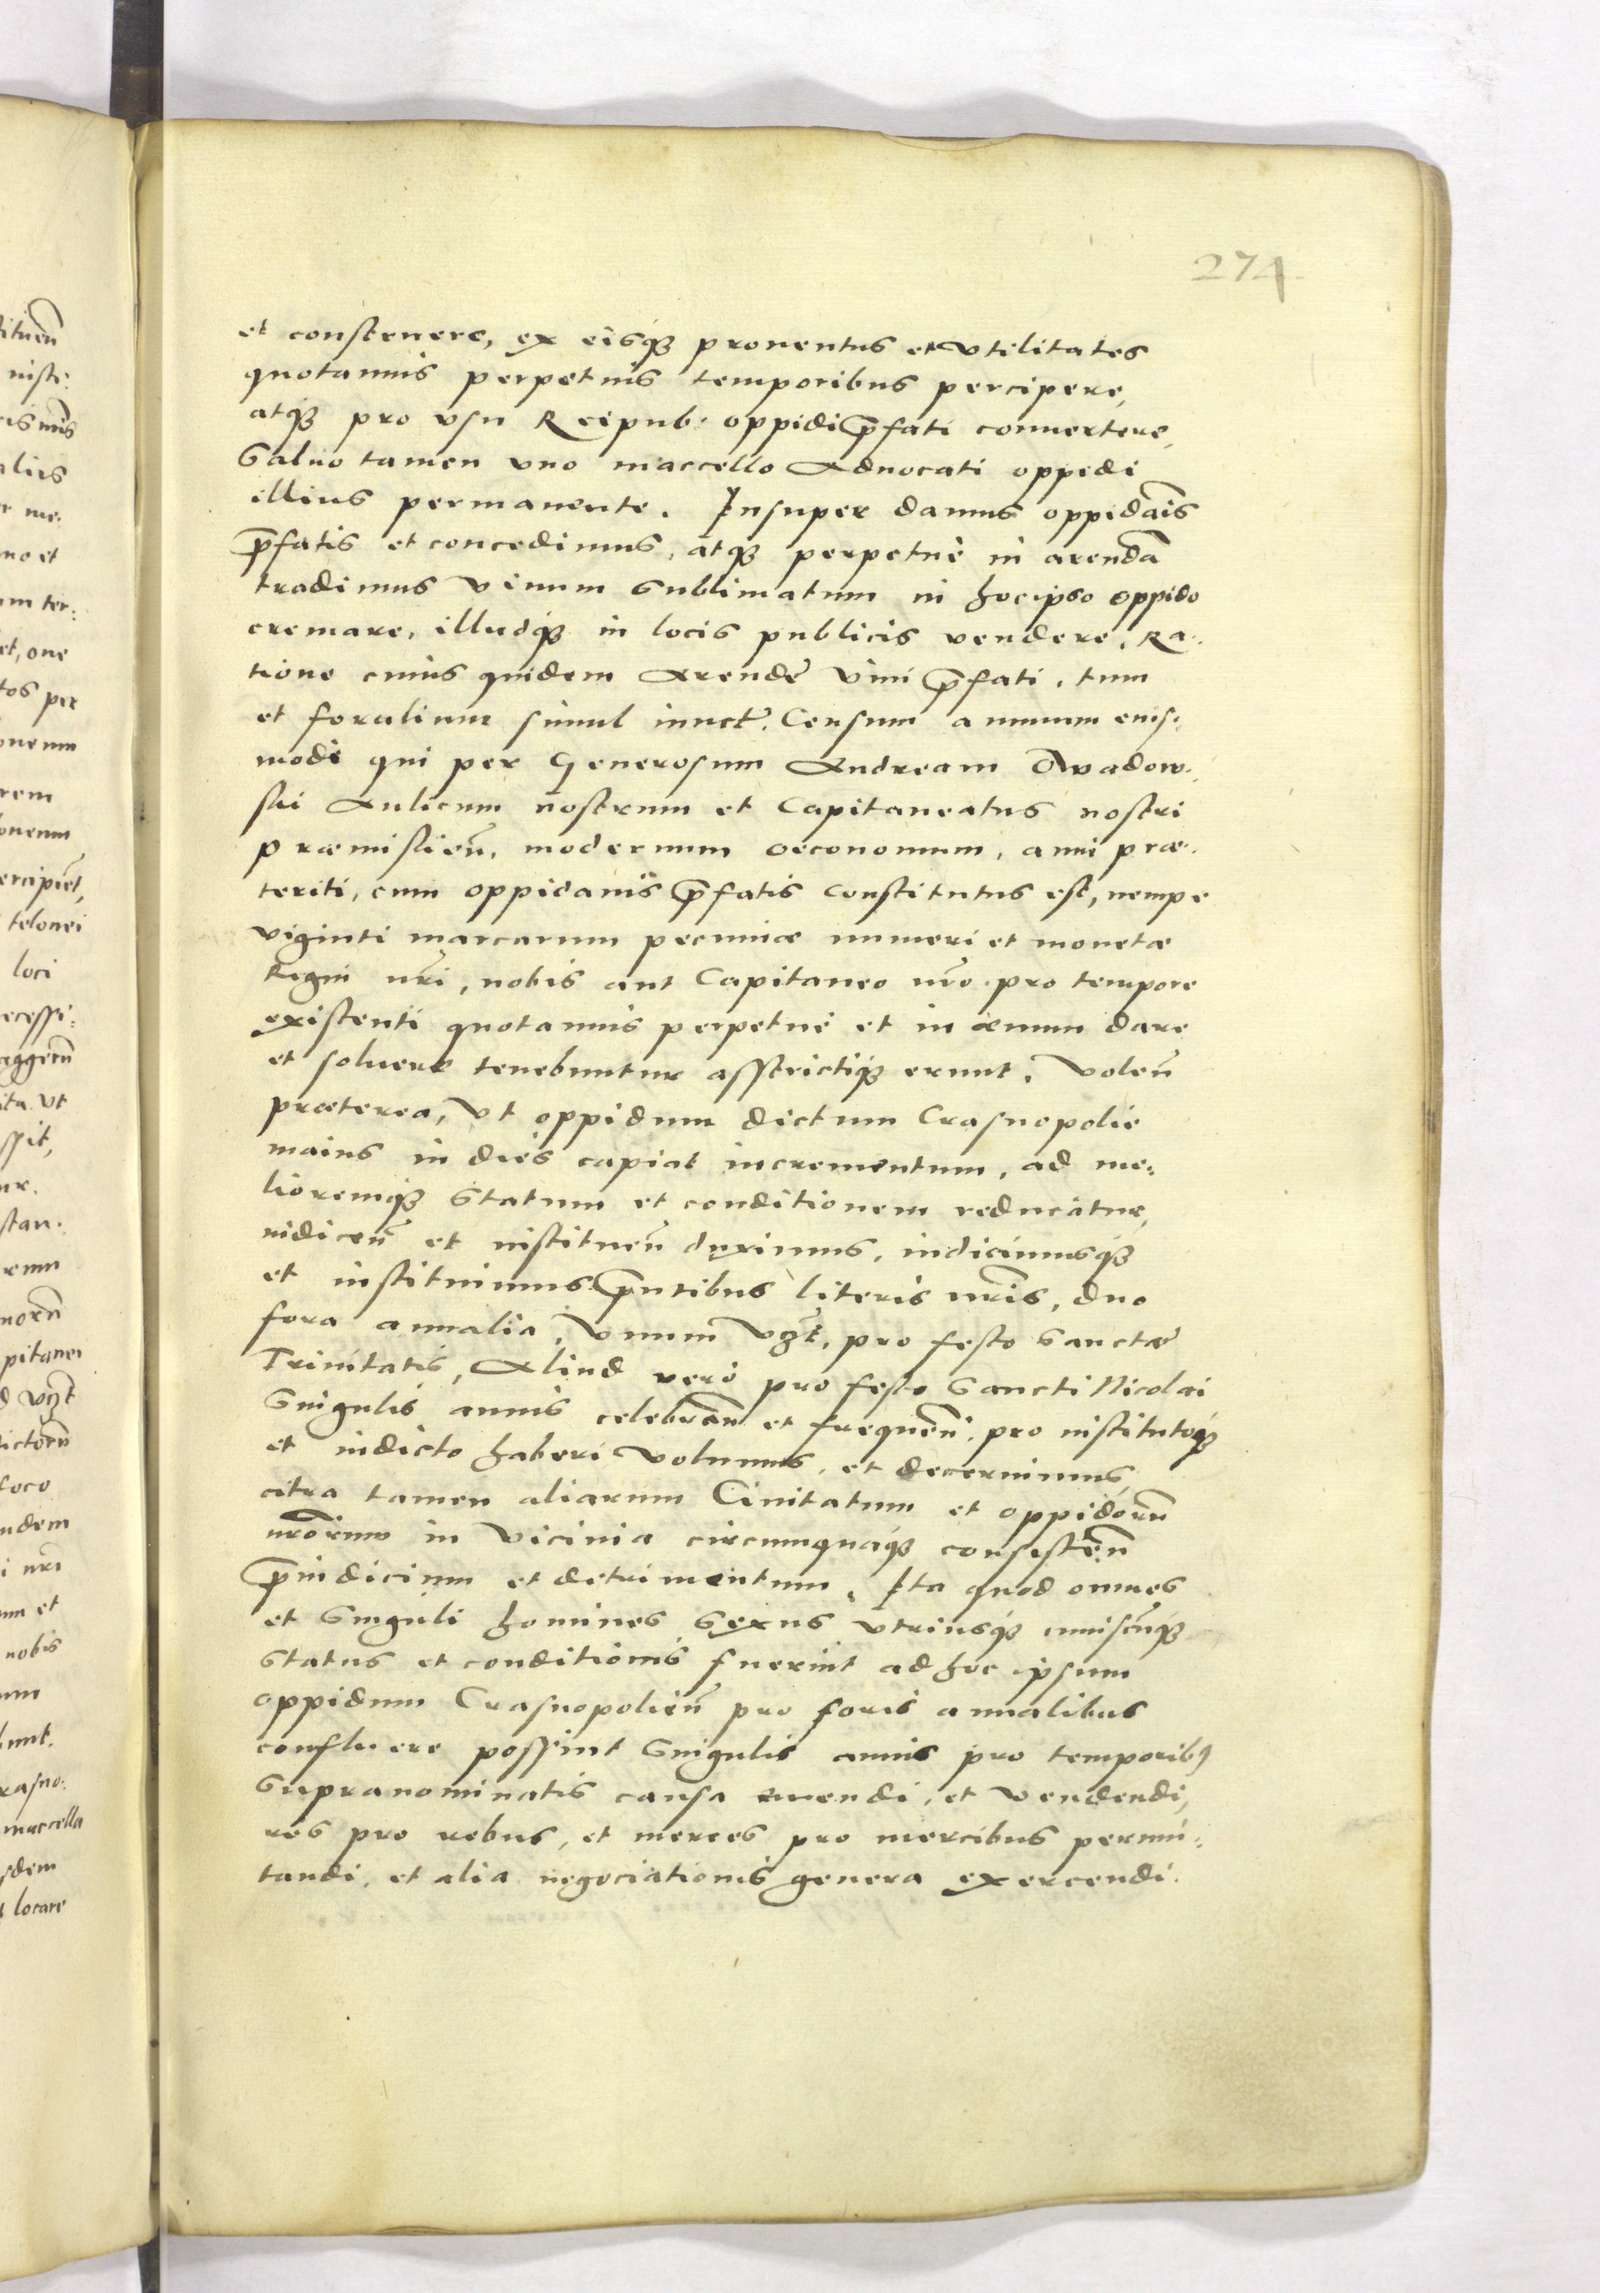 274
et conseruere, ex eisq3 prouentus et vtilitates
quotannis perpetuis temporibus percipere,
atq3 pro vsu Reipub: oppidi p̄fati conuertere,
Saluo tamen vno maccello Aduocati oppidi
illius permanente. Insuper damus oppidāis
p̄fatis et concedimus, atq3 perpetuè in arendā
tradimus Vinum sublimatum in hoc ipso oppido
cremare, illudq3 in locis publicis vendere. Ra-
tione cuius quidem Arendę vini p̄fati, tum
et foralium simul iunctę. Censum annuum eius-
modi qui per Generosum Andream
Aulicum nostrum et Capitaneatus nostri
Præmislień, modernum oeconomum, anni præ-
teriti, cum oppidanis p̄fatis constitutus est, nempe
viginti marcarum pecuniæ numeri et monetæ
Regni nr̄i, nobis aut Capitaneo nr̄o pro tempore
existenti quotannis perpetuè et in æuum dare
et soluere tenebuntur asstrictiq3 erunt. Voleń
præterea, vt oppidum dictum Crasnopolie
maius in dies capiat incrementum, ad me-
lioremq3 statum et conditionem reducatur,
indiceń et instítueń duximus, indicimusq3
et instituimus p̄ntibus literis nr̄is, duo
fora annalia, Vnum vꝫt, pro festo Sanctæ
Trinitatis, Aliud verò pro festo Sancti Nicolai
Singulis annis celebrań et frequeń. pro institutoq3
et indicto haberi volumus, et decernimus,
citra tamen aliarum Ciuitatum et oppidorū
nr̄orum in vicinia circumquaq3 consisteń
p̄iudicium et detrimentum. Ita quod omnes
et singuli homines sexus vtriusq3 cuiuscūq3
status et conditionis fuerint ad hoc ipsum
oppidum Crasnopolień pro foris annalibus
confluere possint singulis annis pro temporib9
supranominatis causa emendi, et vendendi,
res pro rebus, et merces pro mercibus permu-
tandi, et alia negociationis genera exercendi.